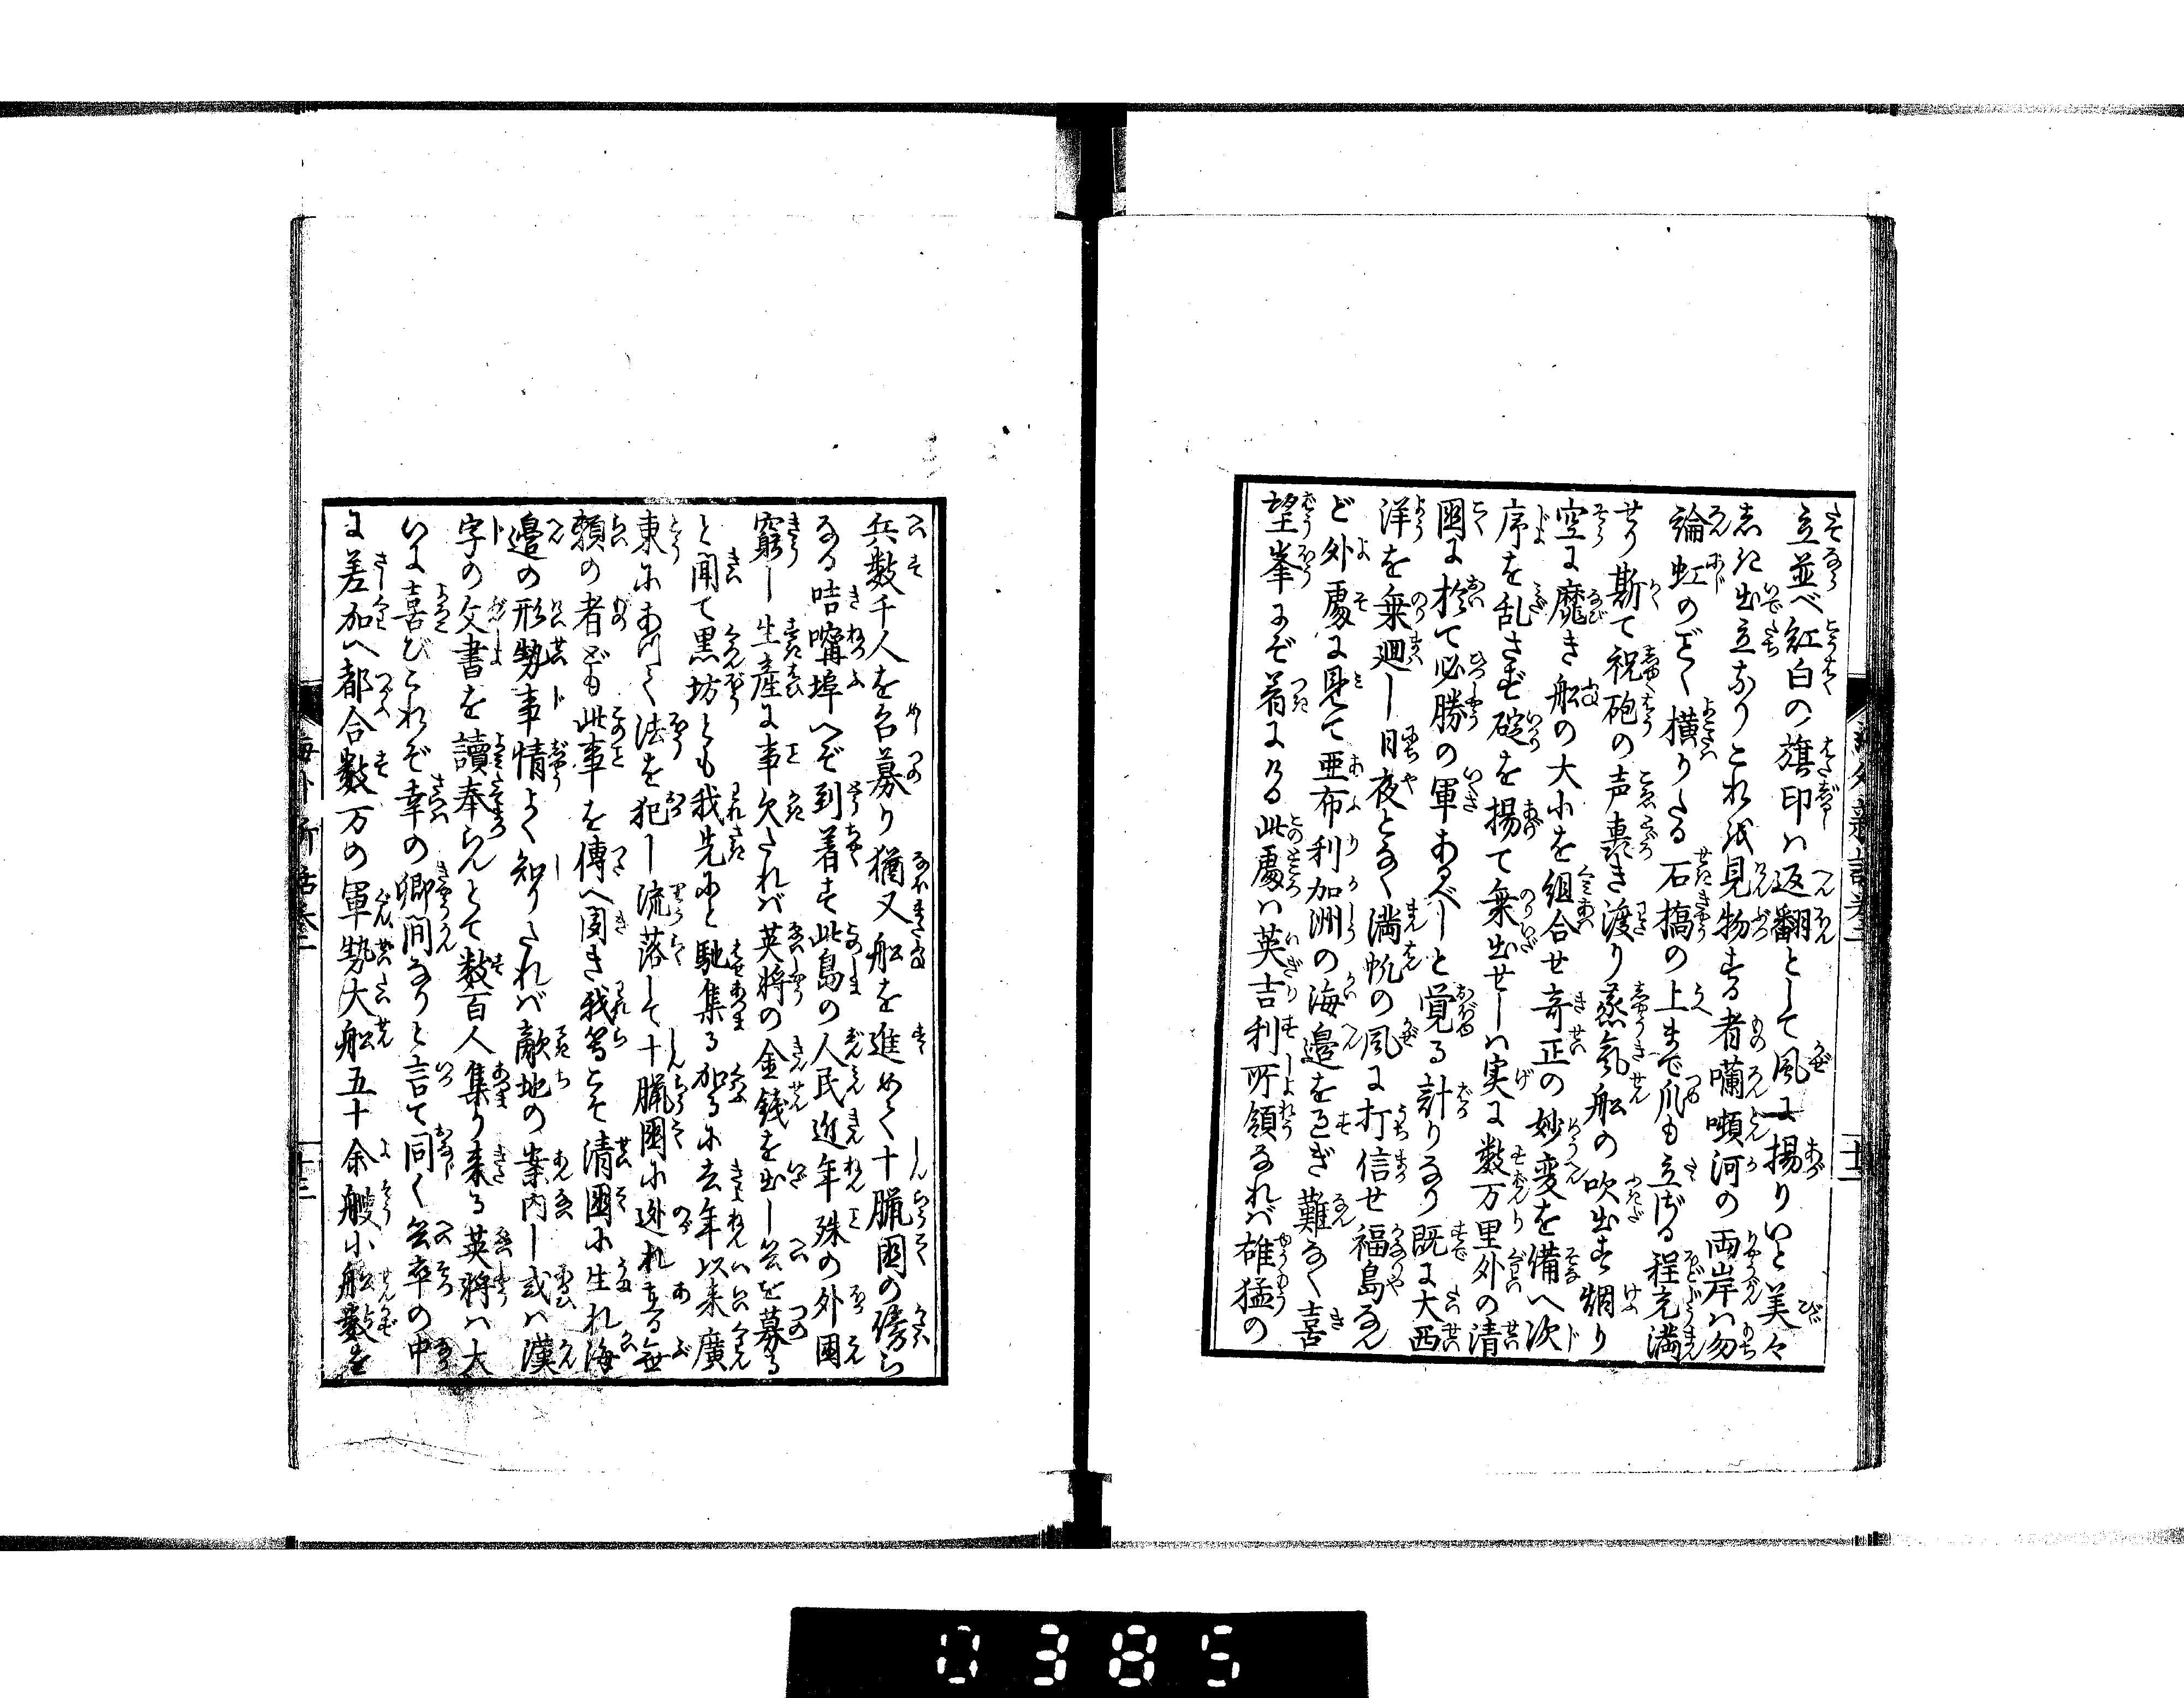 立並べ紅白の旗印ハ返翻として風に揚りいと美々
しき出立なりこれを見物する者囒噸河の両岸ハ勿
論虹のごとく横りたる石搞の上まで爪も立ざる程充満
せり斯て祝砲の声轟き渡り蒸気船の吹出す烟り
空に靡き船の大小を組合せ奇正の妙変を備へ次
序を乱さず碇を揚て乗出せしハ実に数万里外の清
國に於て必勝の軍あるべしと覚る計りなり既に大西
洋を乗廻し日夜となく満帆の風に打信せ福島なん
ど外處に見て亜布利加洲の海邉を過ぎ難なく喜
望峯にぞ着にける此處ハ英吉利所領なれバ雄猛の
海外新話巻二
十二
兵數千人を召募り猶又船を進めて十臘國の傍ら
なる咭嚀埠へぞ到着す此島の人民近年殊の外困
窮し生産に事欠たれバ英将の金錢を出し兵を募る
と聞て黒坊とも我先にと馳集る加るに去年以来廣
東にあつて法を犯し流落して十臘國に逃れ居る無
頼の者ども此事を傳へ聞き我等こそ清國に生れ海
邉の形勢事情よく知りたれバ敵地の案内し或ハ漢
字の文書を讀奉らんとて数百人集り来る英将ハ大
いに喜びこれぞ幸の郷間なりと言て同く兵卒の中
に差加へ都合数万の軍勢大船五十余艘小船數を
海外新話巻二
十三
0385